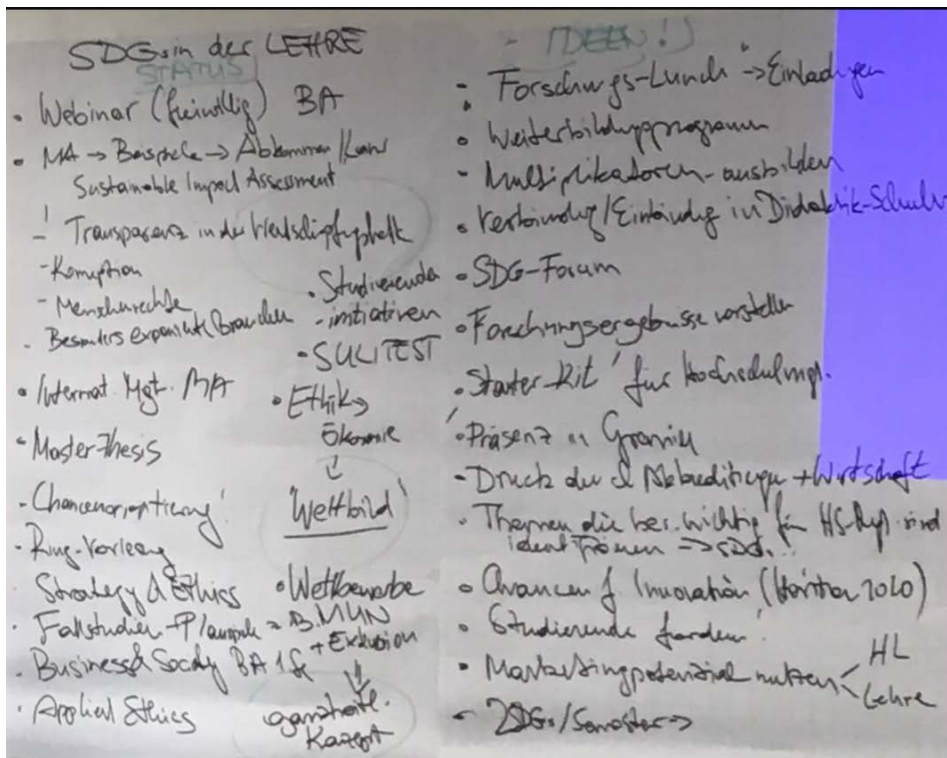 SDGs in der LEHRE
STATUS
• Webinar (freiwillig) BA
• MA → Beispiele → Abkommen
Sustainable Impact Assessment
- Transparenz in der Wertschöpfungskette
- Korruption
- Menschenrechte
- Besonders exponierte Branchen
• Internat. Mgt. MA
• Master-Thesis
• Chancenorientierung!
• Ring-Vorlesung
Strategy & Ethics
• Fallstudien - Planspiele
• Business & Society BA
• Applied Ethics
• Studierenden
- initiativen
• SULITEST
• Ethik
Ökonomie
↓
"Weltbild"
• Wettbewerbe
z.B. MUN
+ Exkursion
⇓
ganzheitl.
Konzept
- IDEEN!
• Forschungs-Lunch → Einladungen
• Weiterbildungsprogramm
- Multiplikatoren - ausbilden
• Verbindung/Einbindung in Didaktik-Schul
• SDG-Forum
• Forschungsergebnisse vorstellen
• Starter-Kit für Hochschulmgt.
• Präsenz in Gremien
- Druck durch Akkreditierungen + Wirtschaft
• Themen die bes. wichtig für HS-Prof. sind
identifizieren → SDG...
• Chancen f. Innovation (Horizon 2020)
• Studierende fordern!
• Marketingpotenzial nutzen < HL
Lehre
- 2SDGs/Semester →